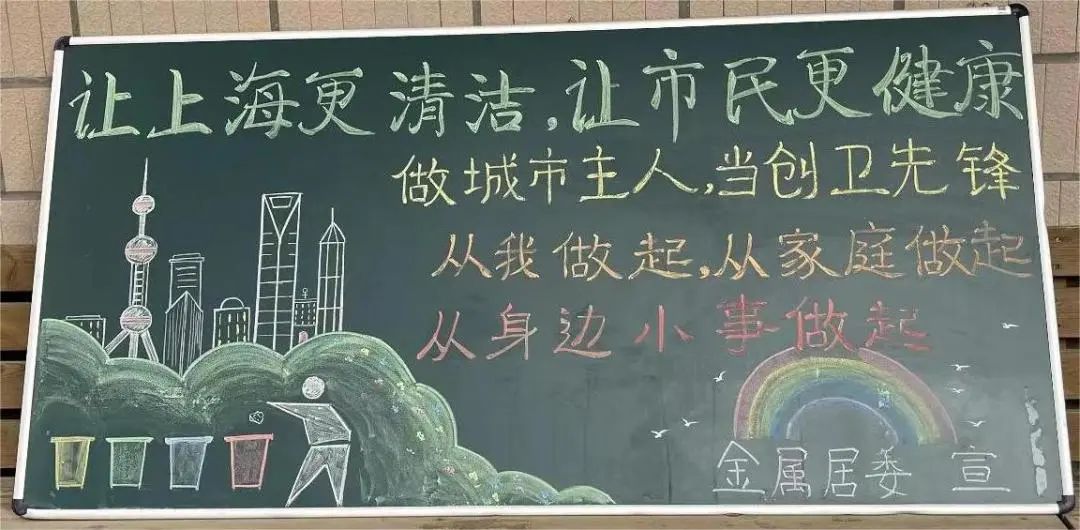 让上海更清洁，让市民更健康
做城市主人，当创卫先锋
从我做起，从家庭做起
从身边小事做起
金属居委 宣